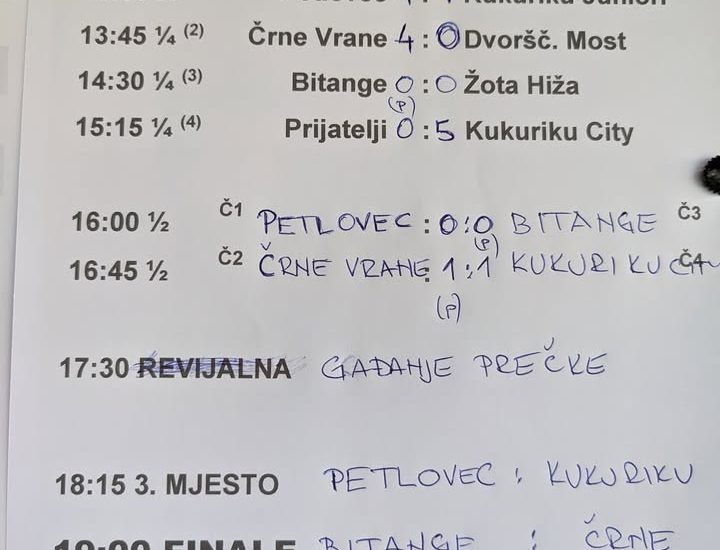 Kukuriku Juniori
13:45 ¼ (2) Črne Vrane 4 : 0 Dvoršč. Most
14:30 ¼ (3) Bitange 0 : 0 Žota Hiža
(P)
15:15 ¼ (4) Prijatelji 0 : 5 Kukuriku City
16:00 ½ Č1 PETLOVEC : 0:0 BITANGE Č3
(P)
16:45 ½ Č2 ČRNE VRANE : 1:1 KUKURIKU Č4
(P)
17:30 REVIJALNA GAĐANJE PREČKE
18:15 3. MJESTO PETLOVEC : KUKURIKU
19:00 FINALE BITANGE : ČRNE